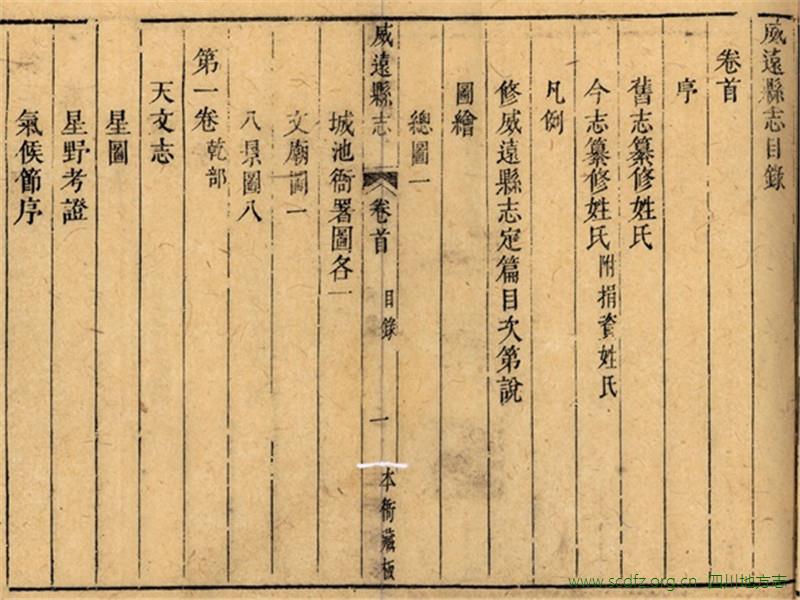 威遠縣志目錄
卷首
序
舊志纂修姓氏
今志纂修姓氏附捐資姓氏
凡例
修威遠縣志定篇目次第說
圖繪
總圖一
威遠縣志 卷首 目錄 一 本衙藏板
城池衙署圖各一
文廟圖一
八景圖八
第一卷乾部
天文志
星圖
星野考證
氣候節序
www.scdfz.org.cn 四川地方志